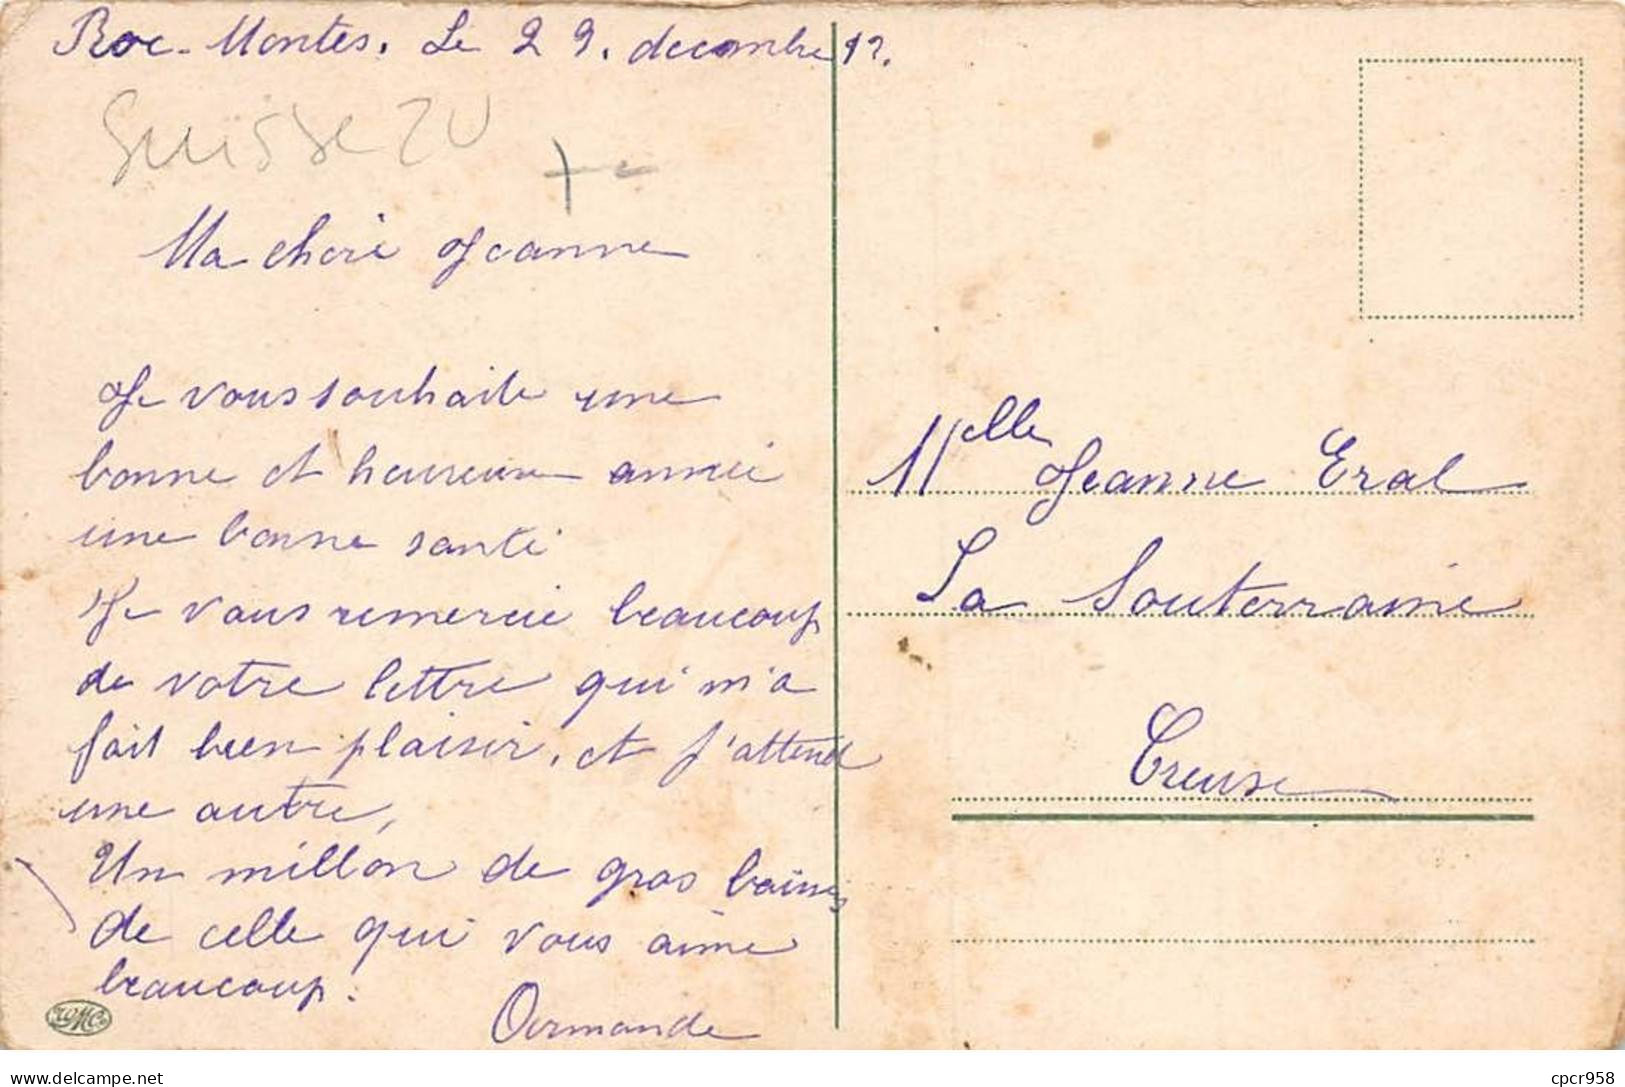 Roc-Montès. Le 29. decembre 12.
Suisse 20
Ma chère Jeanne
Je vous souhaite une
bonne et heureuse année
une bonne santé
Je vous remercie beaucoup
de votre lettre qui m'a
fait bien plaisir, et j'attend
une autre,
Un millon de gros baiser
de celle qui vous aime
beaucoup.
Armande
Melle Jeanne Eral
La Souterraine
Creuse
delcampe.net
cpcr958